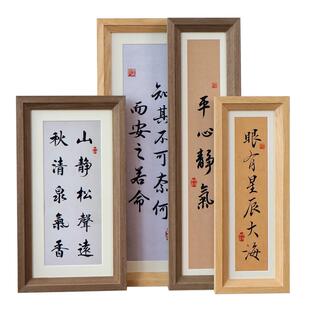 山靜松聲遠
秋清泉氣香
知其不可奈何
而安之若命
平心靜氣
眼有星辰大海